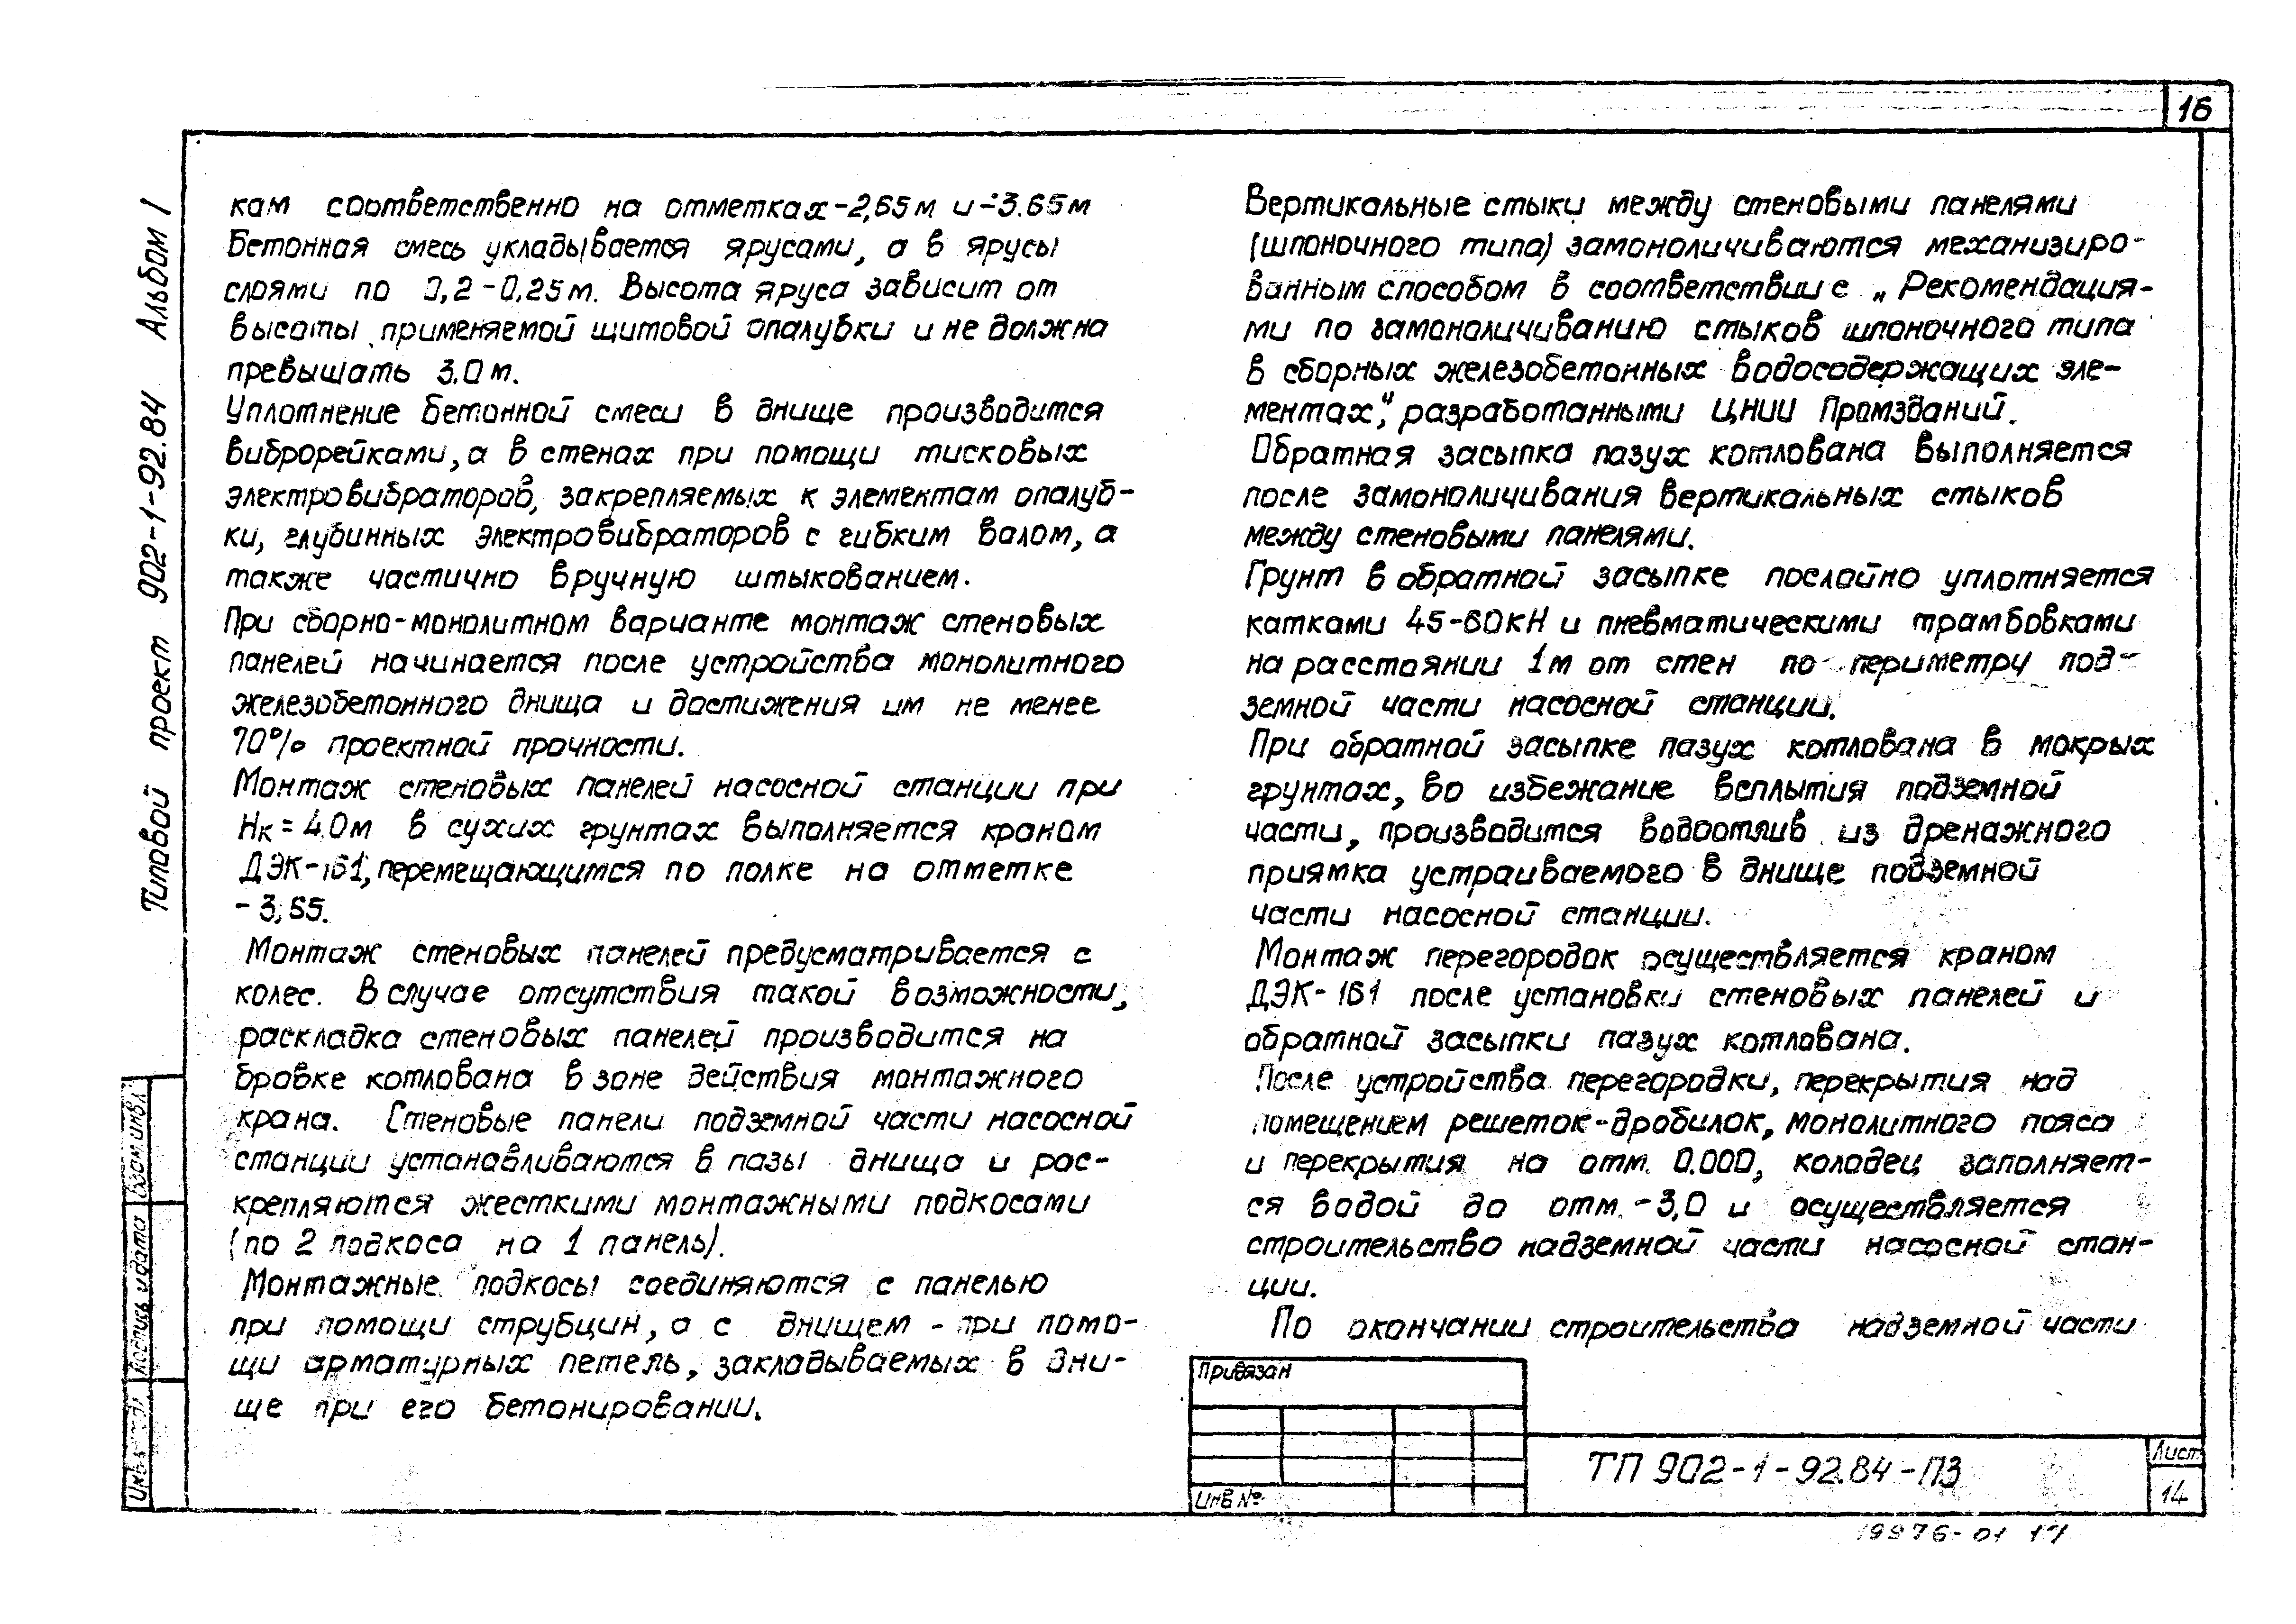 16
Типовой проект 902-1-92.84 Альбом I
кам соответственно на отметках -2,65м и -3.65м
Бетонная смесь укладывается ярусами, а в ярусы
слоями по 0,2-0,25м. Высота яруса зависит от
высоты применяемой щитовой опалубки и не должна
превышать 3.0м.
Уплотнение бетонной смеси в днище производится
виброрейками, а в стенах при помощи тисковых
электровибраторов, закрепляемых к элементам опалуб-
ки, глубинных электровибраторов с гибким валом, а
также частично вручную штыкованием.
При сборно-монолитном варианте монтаж стеновых
панелей начинается после устройства монолитного
железобетонного днища и достижения им не менее
70% проектной прочности.
Монтаж стеновых панелей насосной станции при
Нк = 4.0м в сухих грунтах выполняется краном
ДЭК-161, перемещающимся по полке на отметке
-3,65.
Монтаж стеновых панелей предусматривается с
колес. В случае отсутствия такой возможности,
раскладка стеновых панелей производится на
бровке котлована в зоне действия монтажного
крана. Стеновые панели подземной части насосной
станции устанавливаются в пазы днища и рас-
крепляются жесткими монтажными подкосами
(по 2 подкоса на 1 панель).
Монтажные подкосы соединяются с панелью
при помощи струбцин, а с днищем - при помо-
щи арматурных петель, закладываемых в дни-
ще при его бетонировании.
Вертикальные стыки между стеновыми панелями
(шпоночного типа) замоноличиваются механизиро-
ванным способом в соответствии с „Рекомендация-
ми по замоноличиванию стыков шпоночного типа
в сборных железобетонных водосодержащих эле-
ментах", разработанными ЦНИИ Промзданий.
Обратная засыпка пазух котлована выполняется
после замоноличивания вертикальных стыков
между стеновыми панелями.
Грунт в обратной засыпке послойно уплотняется
катками 45-60кН и пневматическими трамбовками
на расстоянии 1м от стен по периметру под-
земной части насосной станции.
При обратной засыпке пазух котлована в мокрых
грунтах, во избежание всплытия подземной
части, производится водоотлив из дренажного
приямка устраиваемого в днище подземной
части насосной станции.
Монтаж перегородок осуществляется краном
ДЭК-161 после установки стеновых панелей и
обратной засыпки пазух котлована.
После устройства перегородки, перекрытия над
помещением решеток-дробилок, монолитного пояса
и перекрытия на отм. 0.000, колодец заполняет-
ся водой до отм. -3,0 и осуществляется
строительство надземной части насосной стан-
ции.
По окончании строительства надземной части
Привязан
Инв №
ТП 902-1-92.84-ПЗ
Лист
14
Взам инв.
Подпись и дата
Инв.
19976-01 17